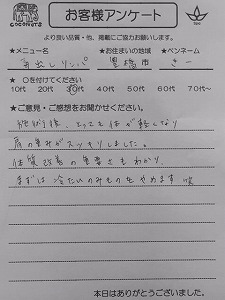 coconuts
お客様アンケート
Spa
より良い品質・他、掲載にご協力お願いします。
★メニュー名 ★お住まいの地域 ★ペンネーム
毒出しリンパ 豊橋市 きー
★○を付けてください
10代 20代 30代 40代 50代 60代 70代~
★ご意見・ご感想をお聞かせください。
施術後、とっても体が軽くなり
肩の重みがスッキリしました。
体質改善の重要さもわかり、
まずは冷たいのみものをやめます
本日はありがとうございました。